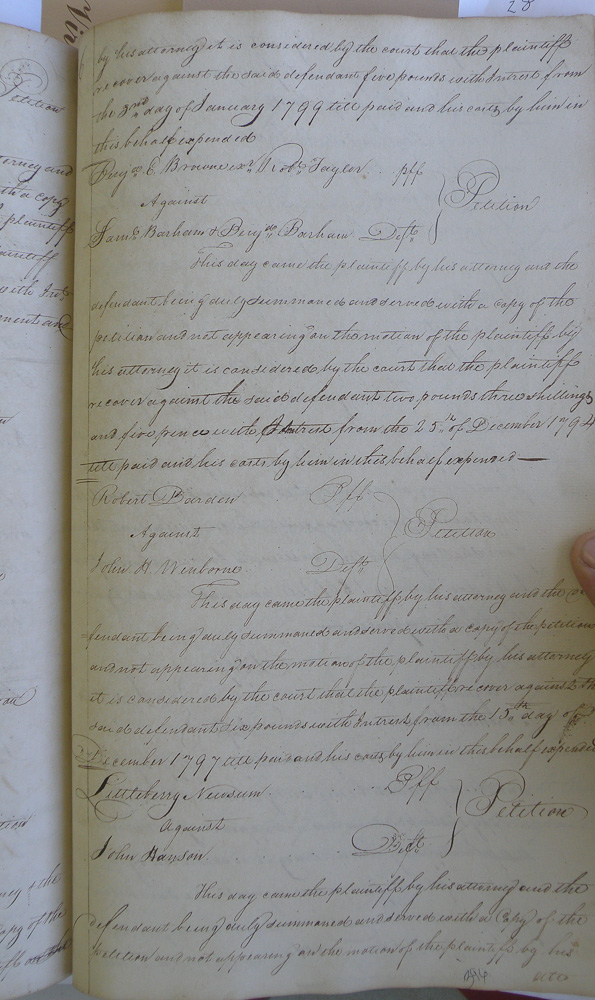 28
by his attorney it is considered by the court that the plaintiff
recover against the said defendant five pounds with Interest from
the 3rd day of January 1799 till paid and his costs by him in
this behalf expended
Benja. E Browne exr. Robt. Taylor pff
Against
Petition
Saml. Barham & Benja. Barham Defts.
This day came the plaintiff by his attorney and the
defendant being duly summoned and served with a copy of the
petition and not appearing on the motion of the plaintiff by
his attorney it is considered by the court that the plaintiff
recover against the said defendant two pounds three shillings
and five pence with Interest from the 25th of December 1794
till paid and his costs by him in this behalf expended —
Robert Dardon Pff
Against
Petition
John H. Winborne Deft.
This day came the plaintiff by his attorney and the
fendant being duly summoned and served with a copy of the petition
and not appearing on the motion of the plaintiff by his attorney
it is considered by the court that the plaintiff recover against the
said defendant six pounds with Interest from the 15th day of
December 1797 till paid and his costs by him in this behalf expended
Littleberry Newsum Pff
Petition
Against
John Hayson Deft.
This day came the plaintiff by his attorney and the
defendant being duly summoned and served with a Copy of the
petition and not appearing on the motion of the plaintiff by his
Petition
torney and
th a copy
plaintiff
aintiff
with Int.
ment and
copy of the